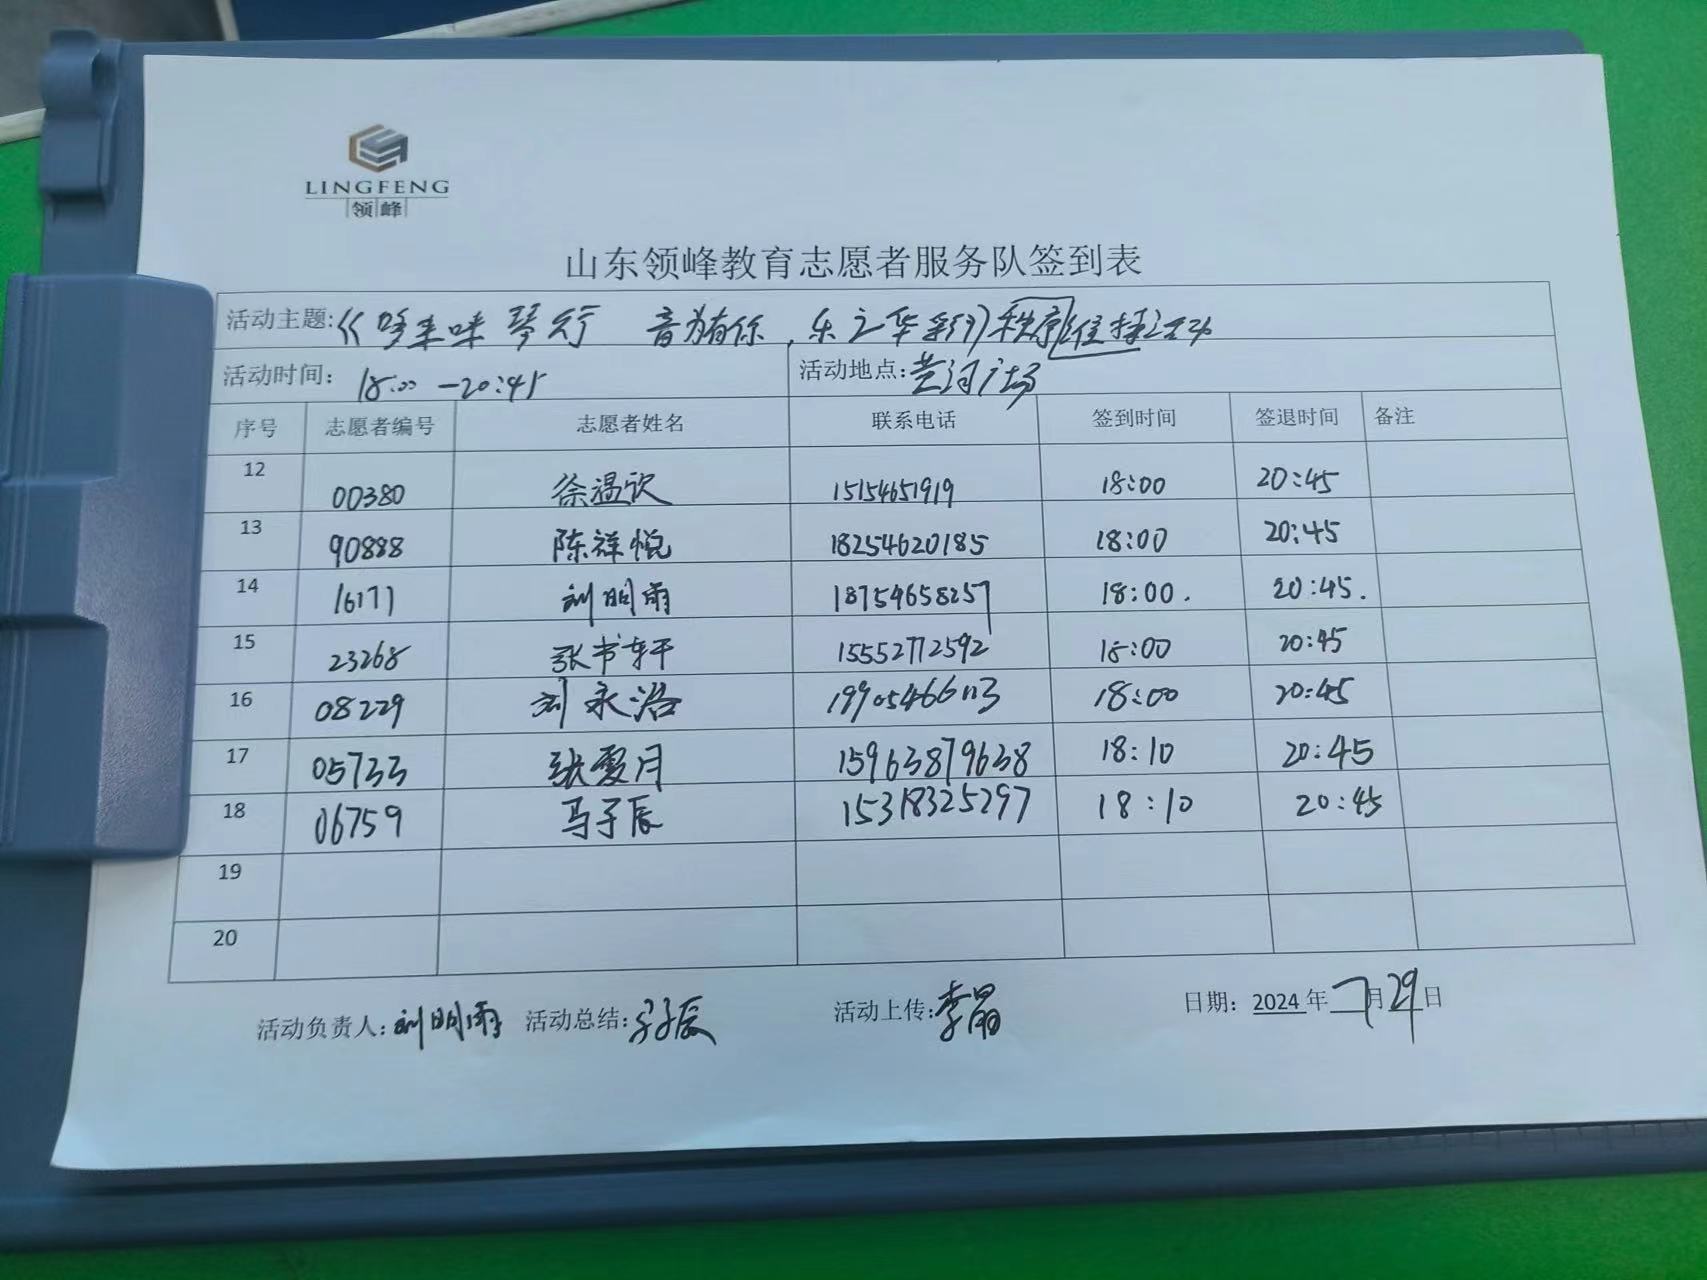 LINGFENG
领峰
山东领峰教育志愿者服务队签到表
活动主题:《哆来咪琴行 音为有你，乐之华彩》秩序维持活动
活动时间: 18:00—20:45 活动地点:黄河广场
序号 志愿者编号 志愿者姓名 联系电话 签到时间 签退时间 备注
12 00380 徐温饮 15154651919 18:00 20:45
13 90888 陈祥悦 18254620185 18:00 20:45
14 16171 刘明雨 18754658257 18:00. 20:45.
15 23268 张书轩 15552772592 18:00 20:45
16 08229 刘永洛 19905466113 18:00 20:45
17 05733 张雯月 15963879638 18:10 20:45
18 06759 马子辰 15318325297 18:10 20:45
19
20
活动负责人:刘明雨 活动总结:马子辰 活动上传:李晶 日期: 2024年7月29日